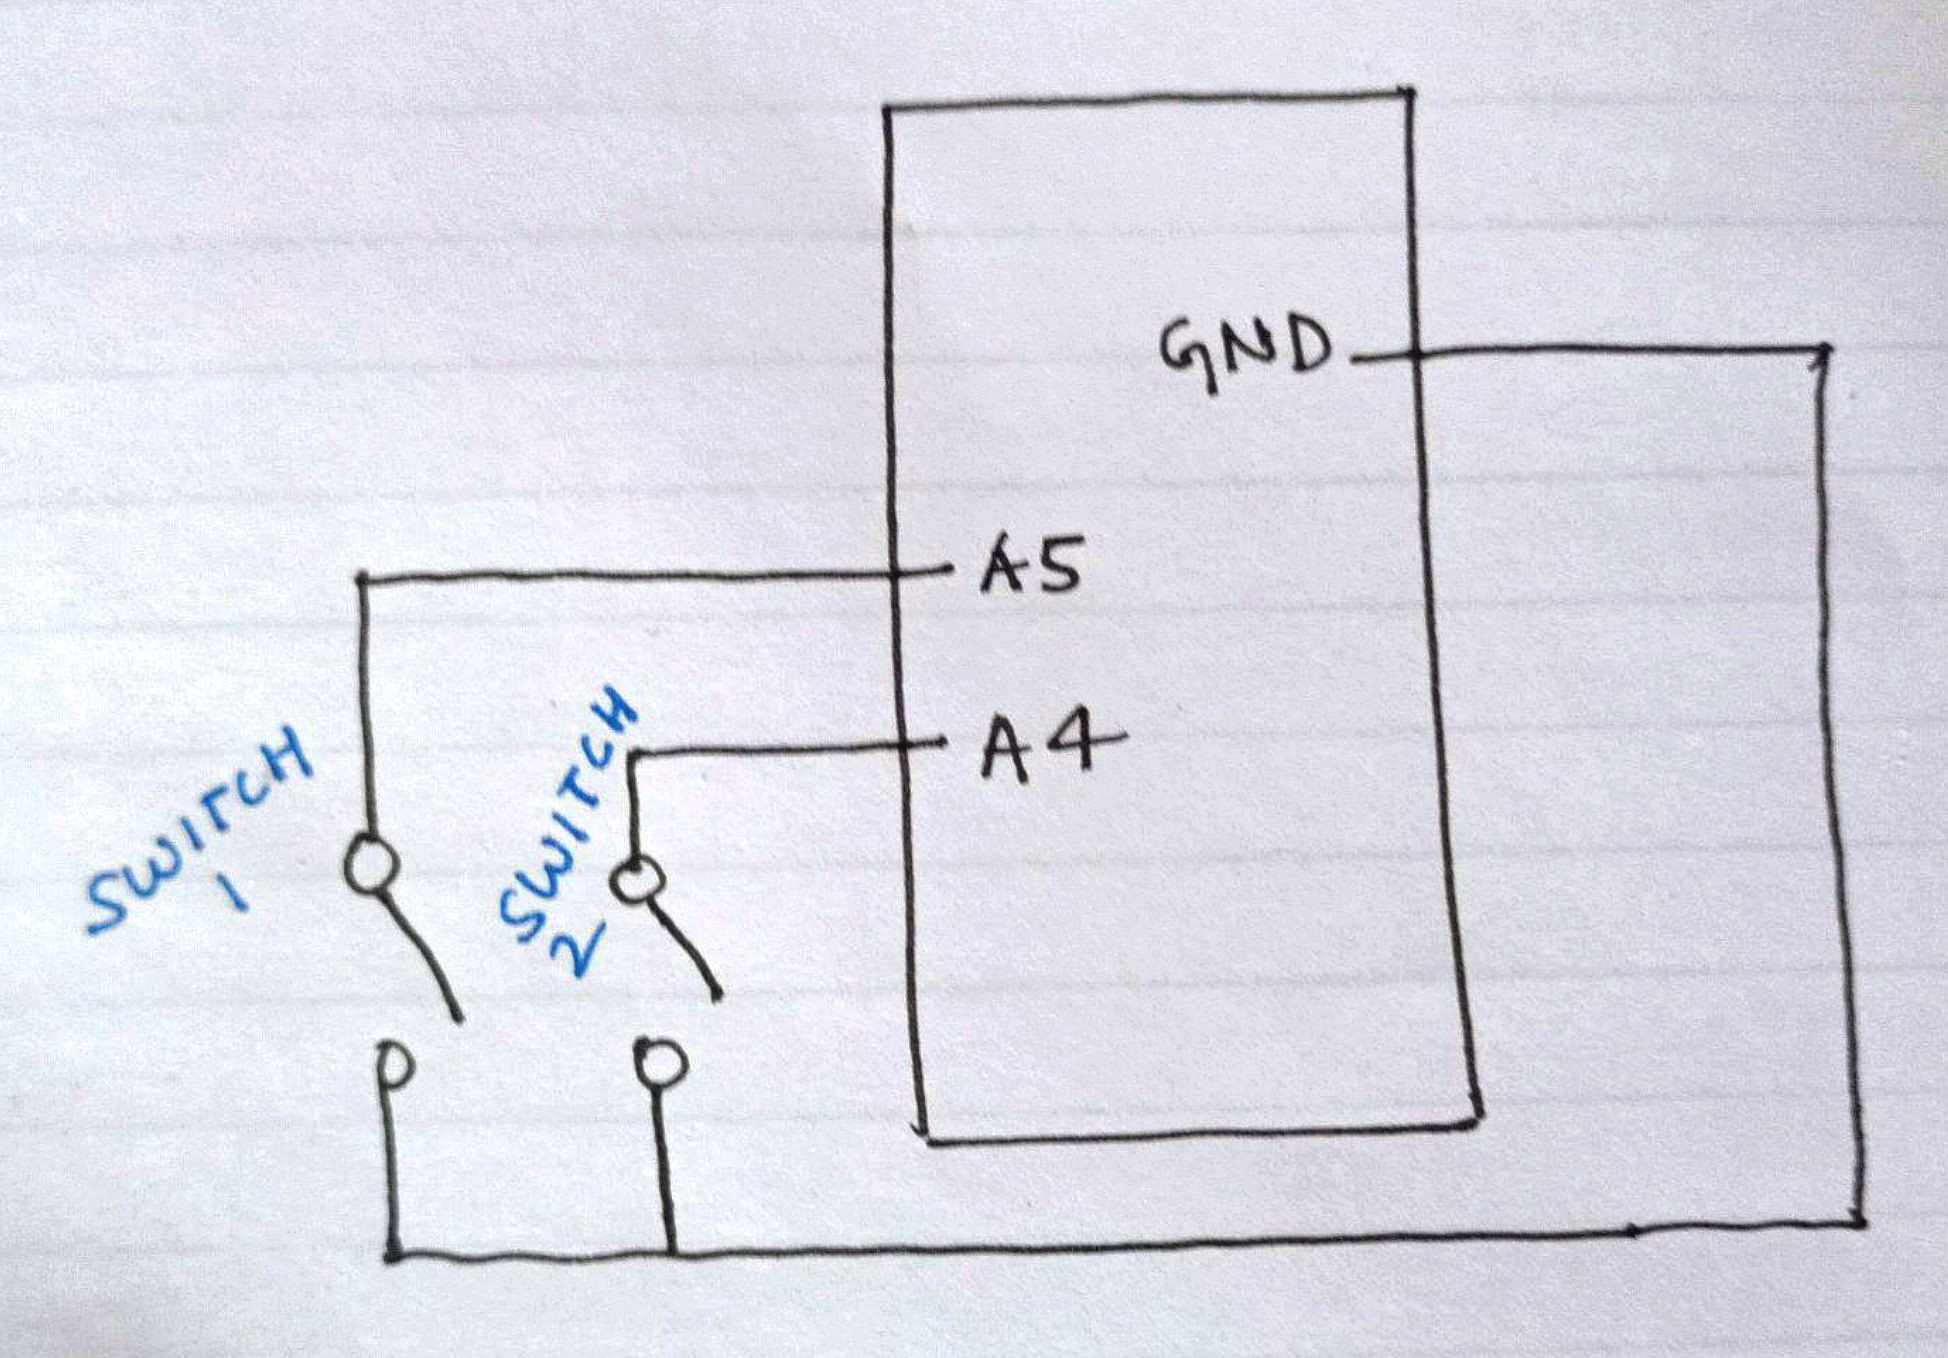 GND
A5
A4
SWITCH
1
SWITCH
2